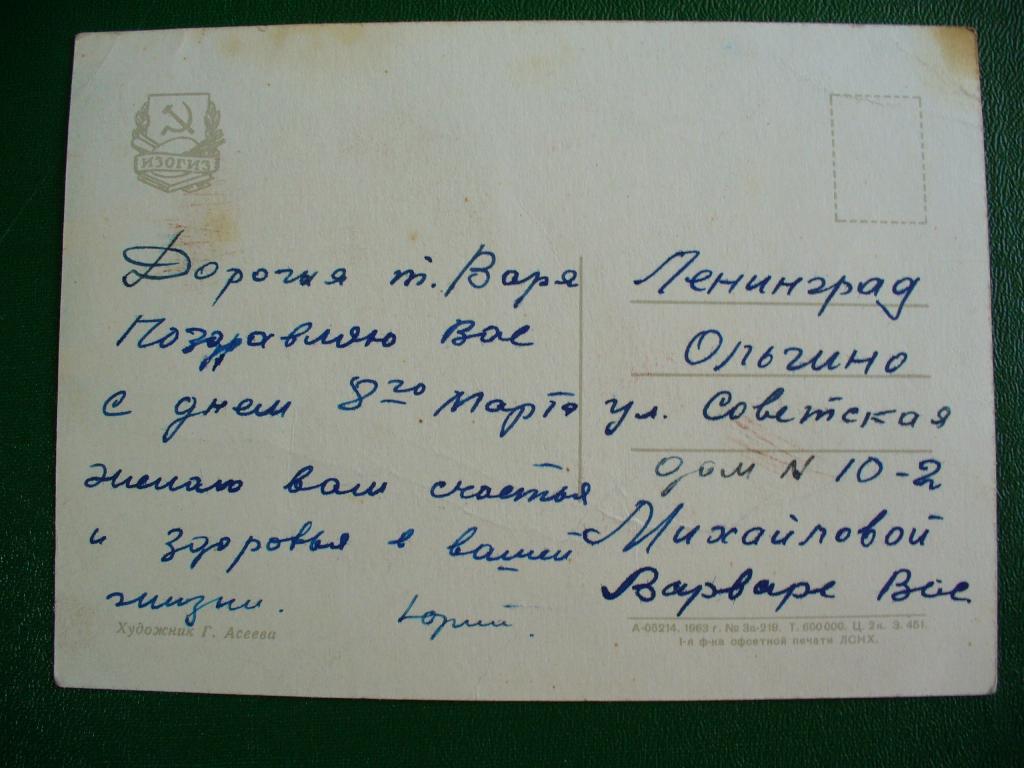 ИЗОГИЗ
Дорогая т. Варя
Поздравляю Вас
с днем 8го Марта
желаю вам счастья
и здоровья в вашей
жизни. Юрий.
Художник Г. Асеева
Ленинград
Ольгино
ул. Советская
дом N 10-2
Михайловой
Варваре Вас
А-06214. 1963 г. № 3а-219. Т. 600000. Ц. 2к. З. 451.
1-я ф-ка офсетной печати ЛСНХ.